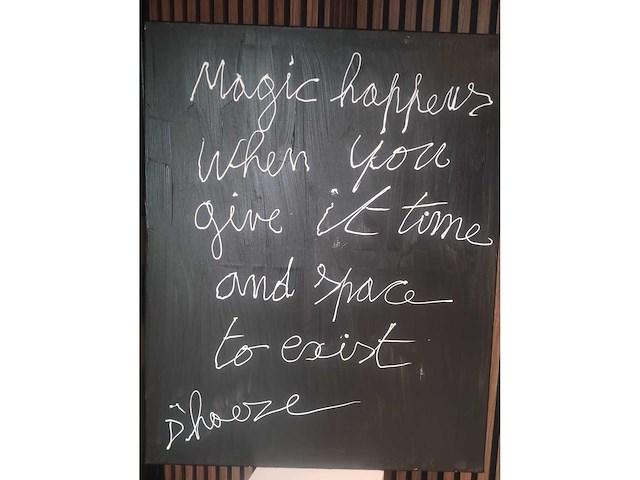 Magic happens
when you
give it time
and space
to exist
D'haeze